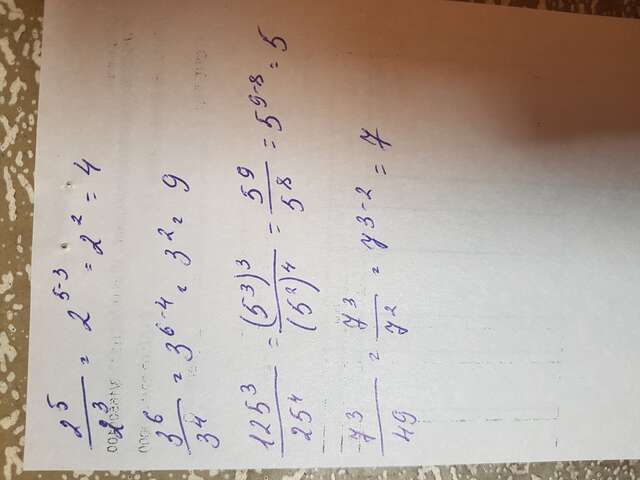 2⁵/2³ = 2⁵⁻³ = 2² = 4
3⁶/3⁴ = 3⁶⁻⁴ = 3² = 9
125³/25⁴ = (5³)³/(5²)⁴ = 5⁹/5⁸ = 5⁹⁻⁸ = 5
7³/49 = 7³/7² = 7³⁻² = 7